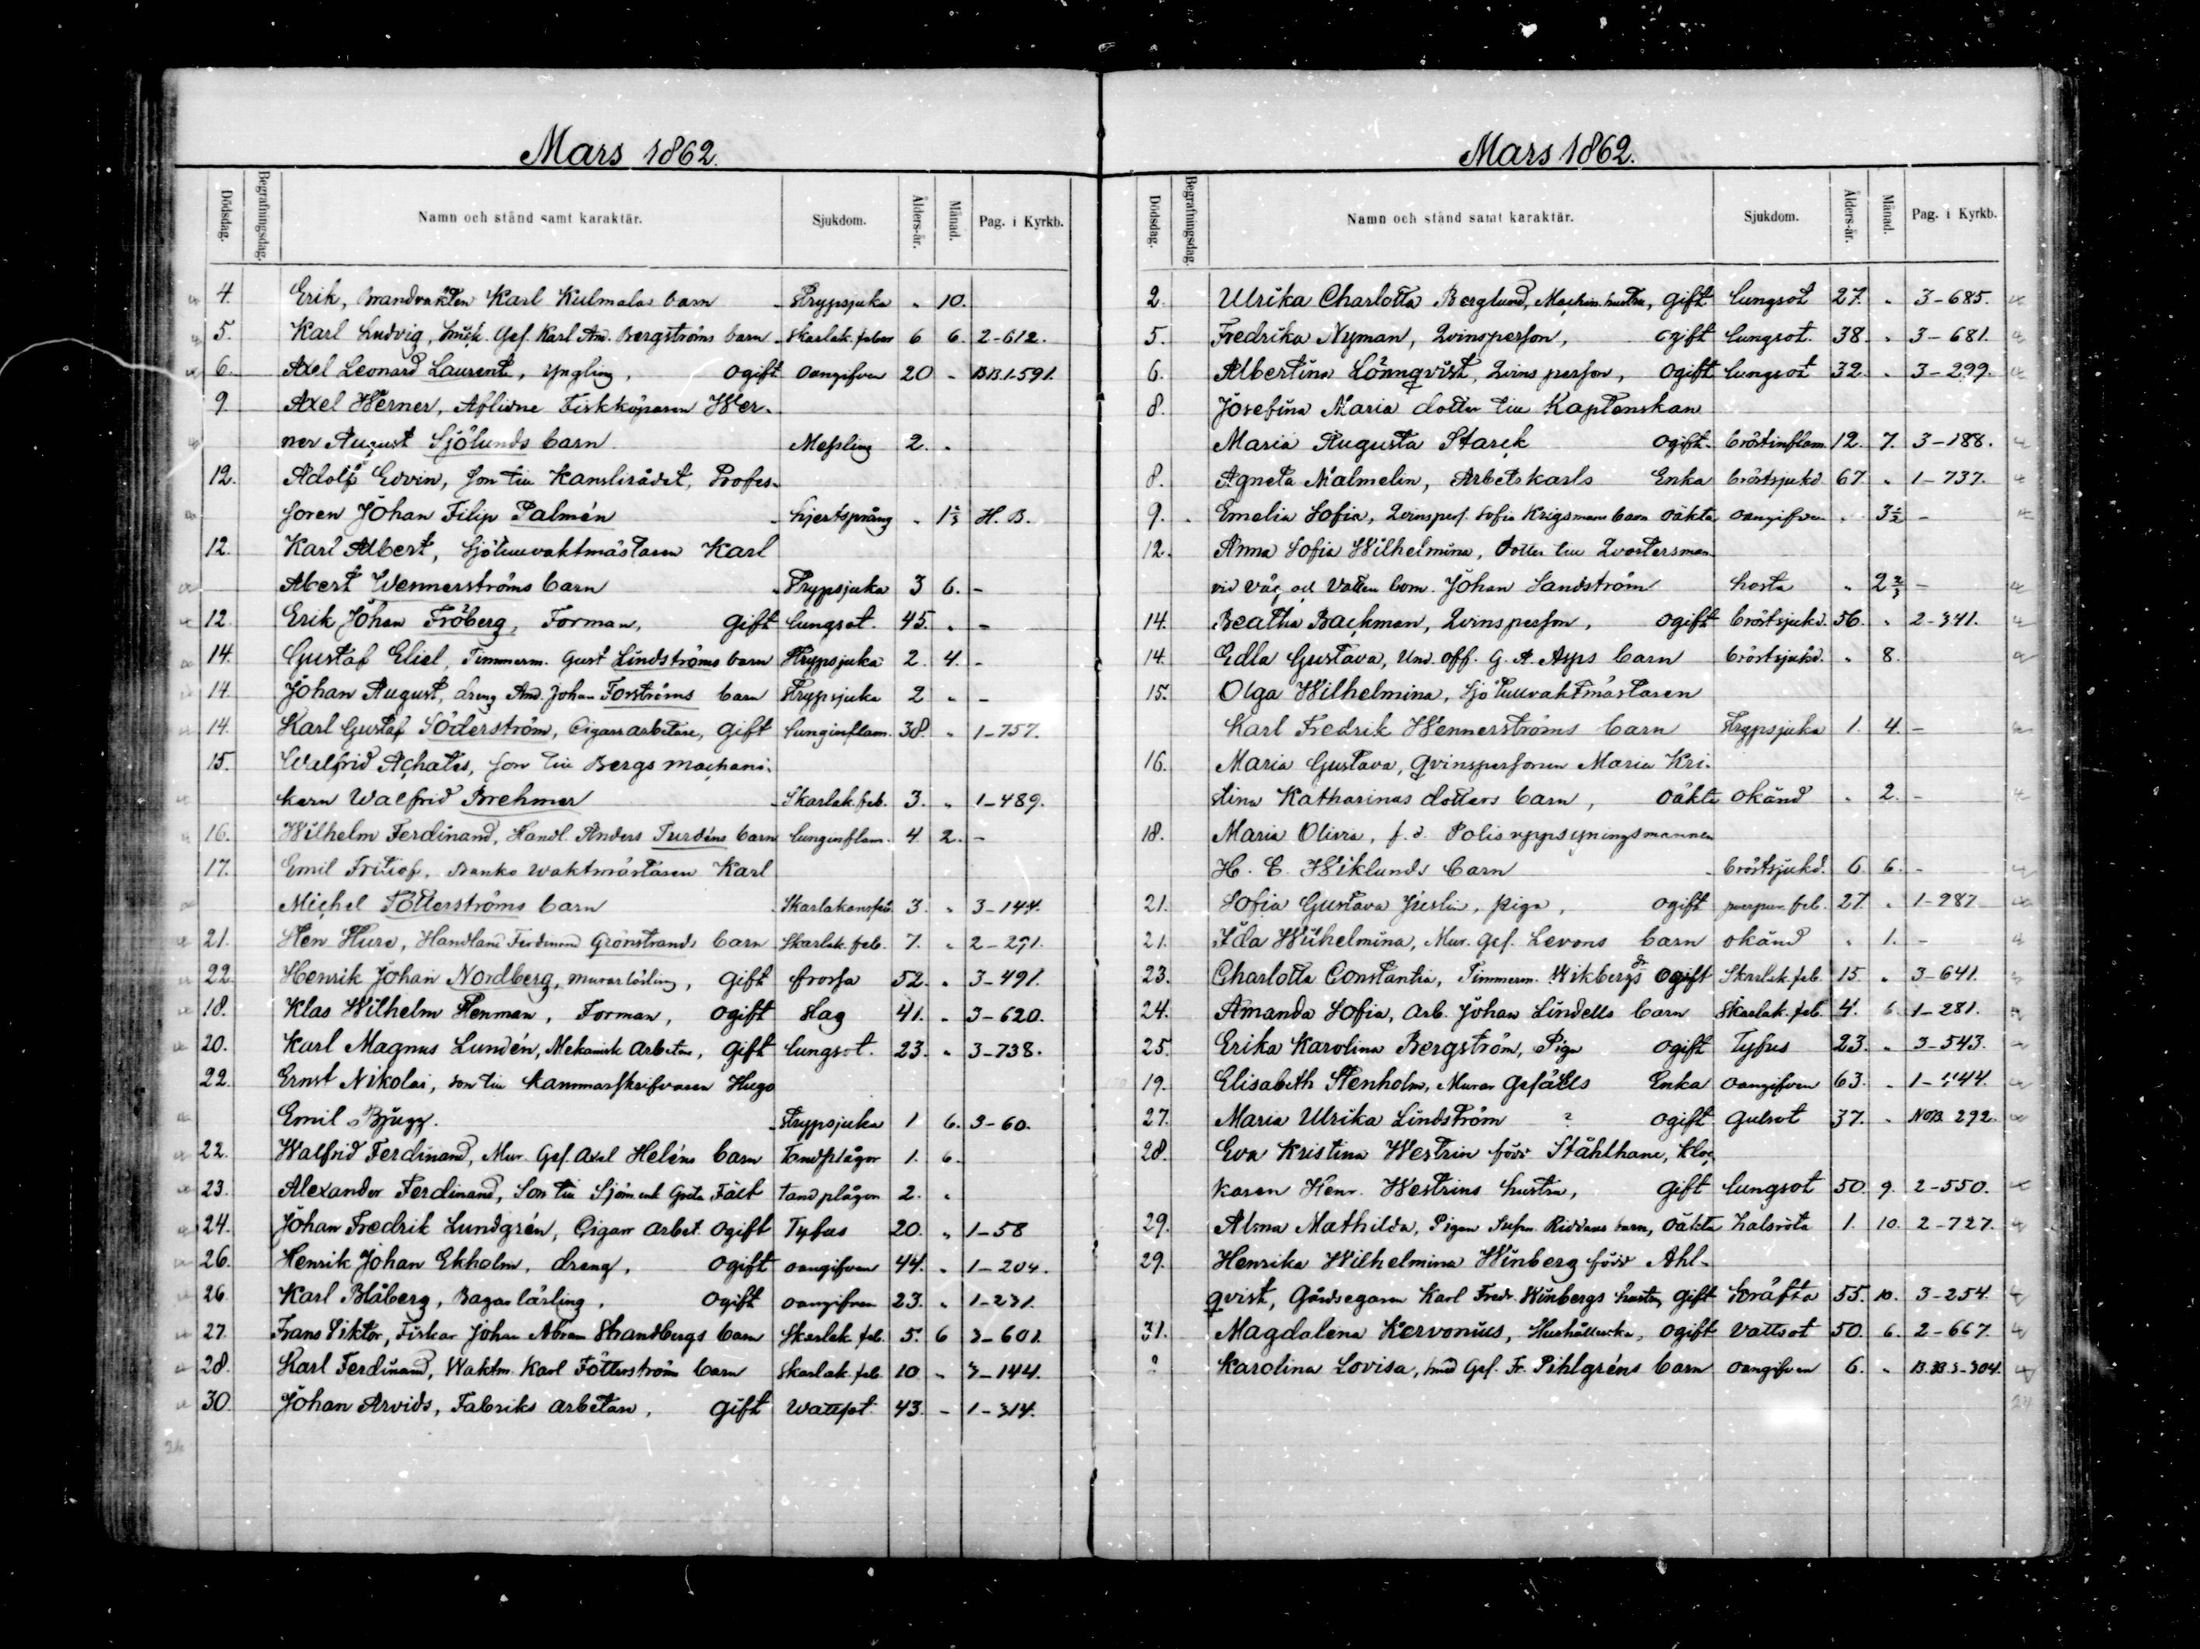 Mars 1862.
Dödsdag. Begrafningsdag. Namn och stånd samt karaktär. Sjukdom. Ålders-år. Månad. Pag. i Kyrkb.
4. Erik, Brandvakten Karl Kulmalas barn Strypsjuka " 10.
5. Karl Ludvig, Gef. Karl And. Bergströms barn Skarlak. feber 6 6. 2-612.
6. Axel Leonard Laurent, Yngling, ogift oangifven 20 - BB.1.591.
9. Axel Werner, Aflidne Fiskköparen Wer-
ner August Sjölunds barn Messling 2. "
12. Adolf Edvin, son till Kanslirådet, Profes-
soren Johan Filip Palmén hjertsprång " H. B.
12. Karl Albert, Sjötullvaktmästaren Karl
Abert Wennerströms barn Strypsjuka 3 6. -
12. Erik Johan Fröberg, Forman, gift lungsot. 45. " -
14. Gustaf Eliel, Timmerm. Gust Lindströms barn Strypsjuka 2. 4. -
14. Johan August, dreng And. Johan Forströms barn Strypsjuka 2 " -
14. Karl Gustaf Söderström, Cigarrarbetare, gift lunginflam. 38. " 1-757.
15. Walfrid Achates, son till Bergs machani-
kern Walfrid Brehmer Skarlak. feb. 3. " 1-489.
16. Wilhelm Ferdinand, Handl. Anders Turdéns barn lunginflam. 4 2. -
17. Emil Fritiof, Banko waktmästaren Karl
Michel Fötterströms barn 3. " 3-144.
21. Sten Sture, Handland Ferdinand Grönstrands barn Skarlak. feb. 7. " 2-291.
22 Henrik Johan Nordberg, murarlärling, gift frossa 52. " 3-491.
18. Klas Wilhelm Stenman, Forman, ogift Slag 41. " 3-620.
20. Karl Magnus Lundén, Mekanisk Arbetare, gift lungsot. 23. " 3-738.
22 Ernst Nikolai, son till Kammarskrifvaren Hugo
Emil Bjugg. Strypsjuka 1 6. 3-60.
22. Walfrid Ferdinand, Mur. Gef. Axel Heléns barn Tandplågor 1. 6.
23. Alexander Ferdinand, Son till Sjöm. enk Greta Fält tandplågen 2. "
24. Johan Fredrik Lundgrén, Cigarr Arbet. ogift Tyfus 20. " 1-58
26. Henrik Johan Ekholm, dreng, ogift oangifven 44. " 1-204.
26 Karl Blåberg, Bagarlärling, ogift oangifven 23. " 1-231.
27. Frans Viktor, Fiskar Johan Abram Strandbergs barn Skarlak. feb. 5. 6 3-601.
28. Karl Ferdinand, Waktm. Karl Fötterströms barn Skarlak. feb. 10 - 3-144.
30. Johan Arvids, Fabriks arbetare, gift Wattsot. 43. - 1-314.
26
Mars 1862.
Dödsdag. Begrafningsdag. Namn och stånd samt karaktär. Sjukdom. Ålders-år. Månad. Pag. i Kyrkb.
2. Ulrika Charlotta Berglund, Machin. hustru, gift lungsot 27. " 3-685.
5. Fredrika Nyman, Qvinsperson, ogift lungsot. 38. " 3-681.
6. Albertina Lönnqvist, Qvinsperson, ogift lungsot 32. " 3-299.
8. Josefina Maria dotter till Kaptenskan
Maria Augusta Starck ogift bröstinflam. 12. 7. 3-188.
8. Agneta Malmelin, Arbetskarls Enka bröstsjukd. 67. " 1-737.
9. Emelia Sofia, Qvinspers. Sofia Krigsmans barn oäkta oangifven " 3½ -
12. Anna Sofia Wilhelmina, dotter till Qvartersman
vid Väg och Vatten kom. Johan Sandström hosta " 2⅔ -
14. Beatha Backman, Qvinsperson, ogift bröstsjukd. 56. " 2-341.
14. Edla Gustava, Und. off. G. A. Asps barn bröstsjukd. " 8.
15. Olga Wilhelmina, Sjötullvaktmästaren
Karl Fredrik Wennerströms barn Strypsjuka 1. 4. -
16. Maria Gustava, qvinspersonen Maria Kri-
stina Katharinas dotters barn, oäkta okänd " 2. -
18. Maria Olivia, f. d. Polisuppsyningsmannen
H. E. Wiklunds barn bröstsjukd. 6 6. -
21. Sofia Gustava Juslin, piga, ogift puerper. feb. 27. " 1-287
21. Ida Wilhelmina, Mur. Gef. Levons barn okänd " 1. -
23. Charlotta Constantia, Timmerm. Wikbergs dr ogift Skarlak. feb. 15 " 3-641.
24. Amanda Sofia, Arb. Johan Lindells barn Skarlak. feb. 4. 6. 1-281.
25. Erika Karolina Bergström, Piga ogift Tyfus 23. " 3-543.
19. Elisabeth Stenholm, Murar Gesälls Enka oangifven 63. "
27. Maria Ulrika Lindström ? ogift Gulsot 37. " NOB. 292.
28. Eva Kristina Westrin född Ståhlhane, Kloc-
karen Henr. Westrins hustru, gift lungsot 50. 9. 2-550.
29. Alma Mathilda, Pigan barn, oäkta halsröta 1. 10. 2-727.
29. Henrika Wilhelmina Winberg född Ahl-
qvist, Gårdsegaren Karl Fredr. Winbergs hustru, gift kräfta 55. 10. 3-254.
31. Magdalena Kervonius, Hushållerska, ogift Vattsot 50. 6. 2-667.
? Karolina Lovisa, smed Gef. Fr. Pihlgréns barn oangifven 6. " B.B3-304.
24